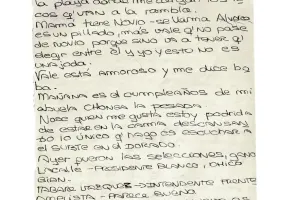 la playa donde me
cos q' van a la rambla.
Mamá tiene novio - se llama Alvaro
es un pillado, más vale q' no pase
de novio porque sino va a tener q'
elegir entre él y yo y esto no es
una joda.
Vale está amoroso y me dice ba
ba.
Mañana es el cumpleaños de mi
abuela Chonga la pesada
Nose quien me gusta estoy podrida
de estar en la cama descansan
do lo único q' hago es escuchar a
el subte en el Dorado.
Ayer fueron las elecciones, ganó
Lacalle - Presidente Blanco, chico
bian.
Tabaré Vazquez - Intendente Frente
Amplista - parece bueno